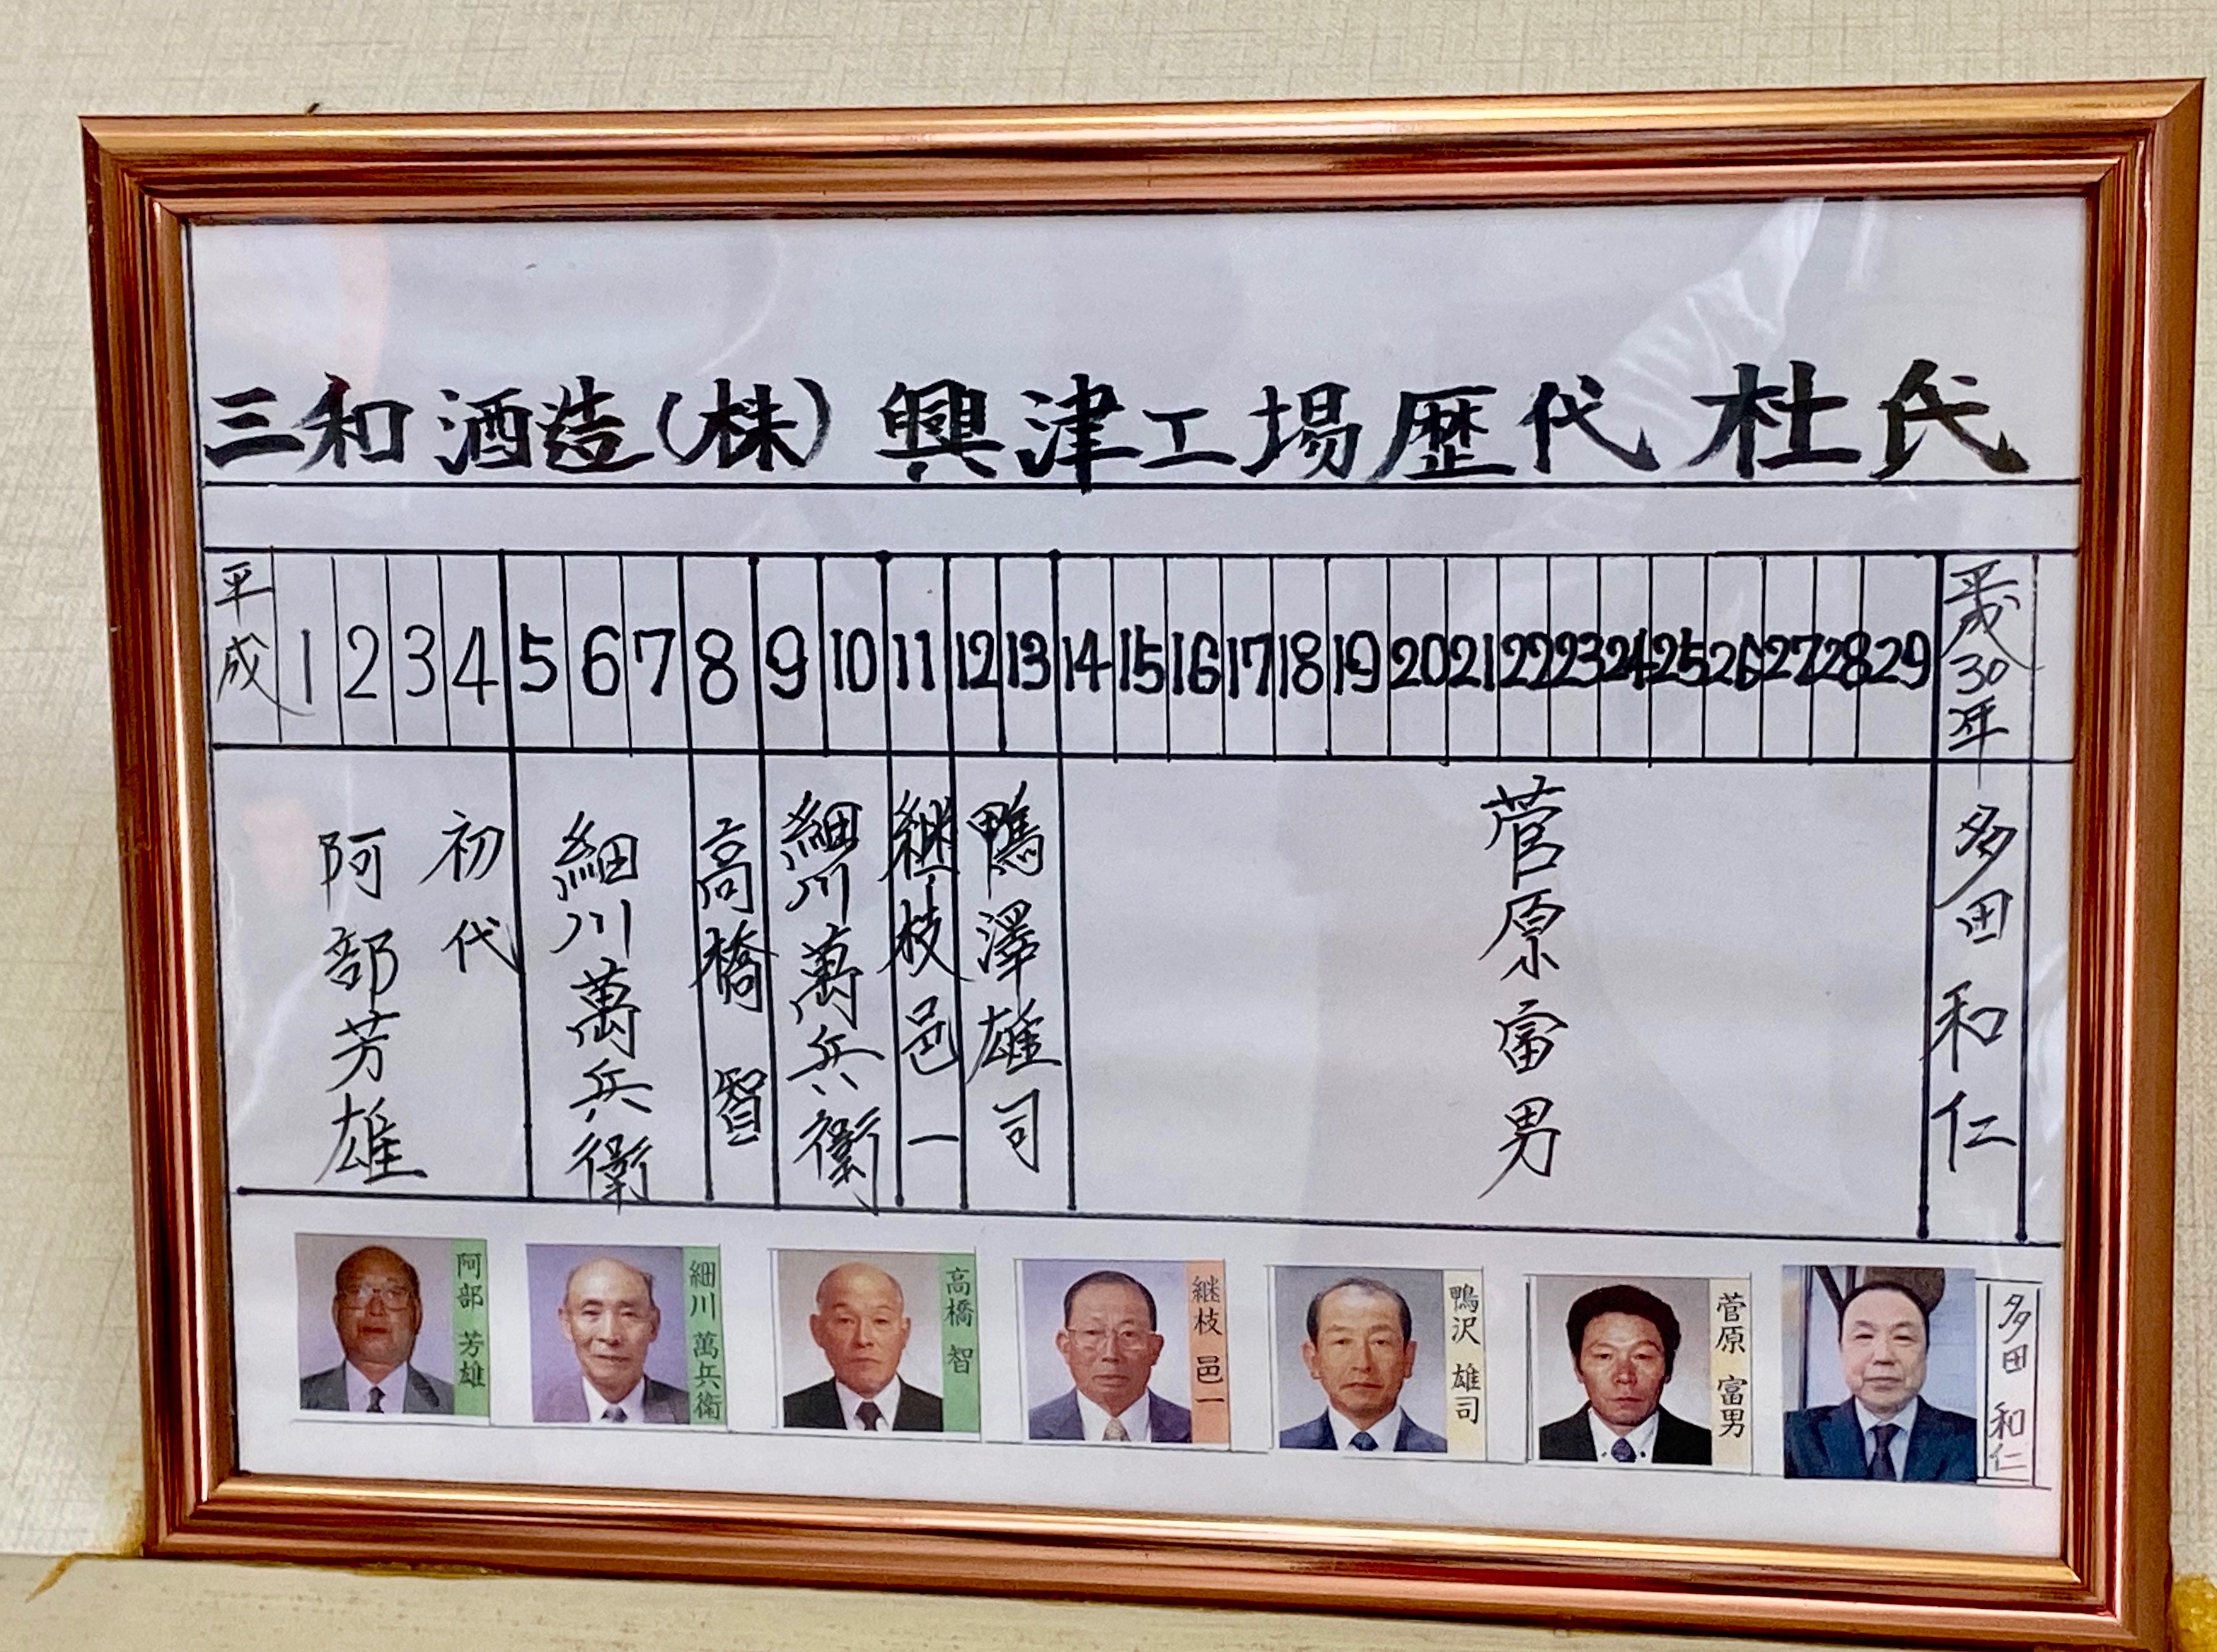 三和酒造(株)興津工場歴代杜氏
平成 1 2 3 4 5 6 7 8 9 10 11 12 13 14 15 16 17 18 19 20 21 22 23 24 25 26 27 28 29 平成30年
初代
阿部芳雄
細川萬兵衛
高橋 智
細川萬兵衛
継枝邑一
鴨澤雄司
菅原富男
多田和仁
阿部 芳雄
細川 萬兵衛
高橋 智
継枝 邑一
鴨沢 雄司
菅原 富男
多田 和仁